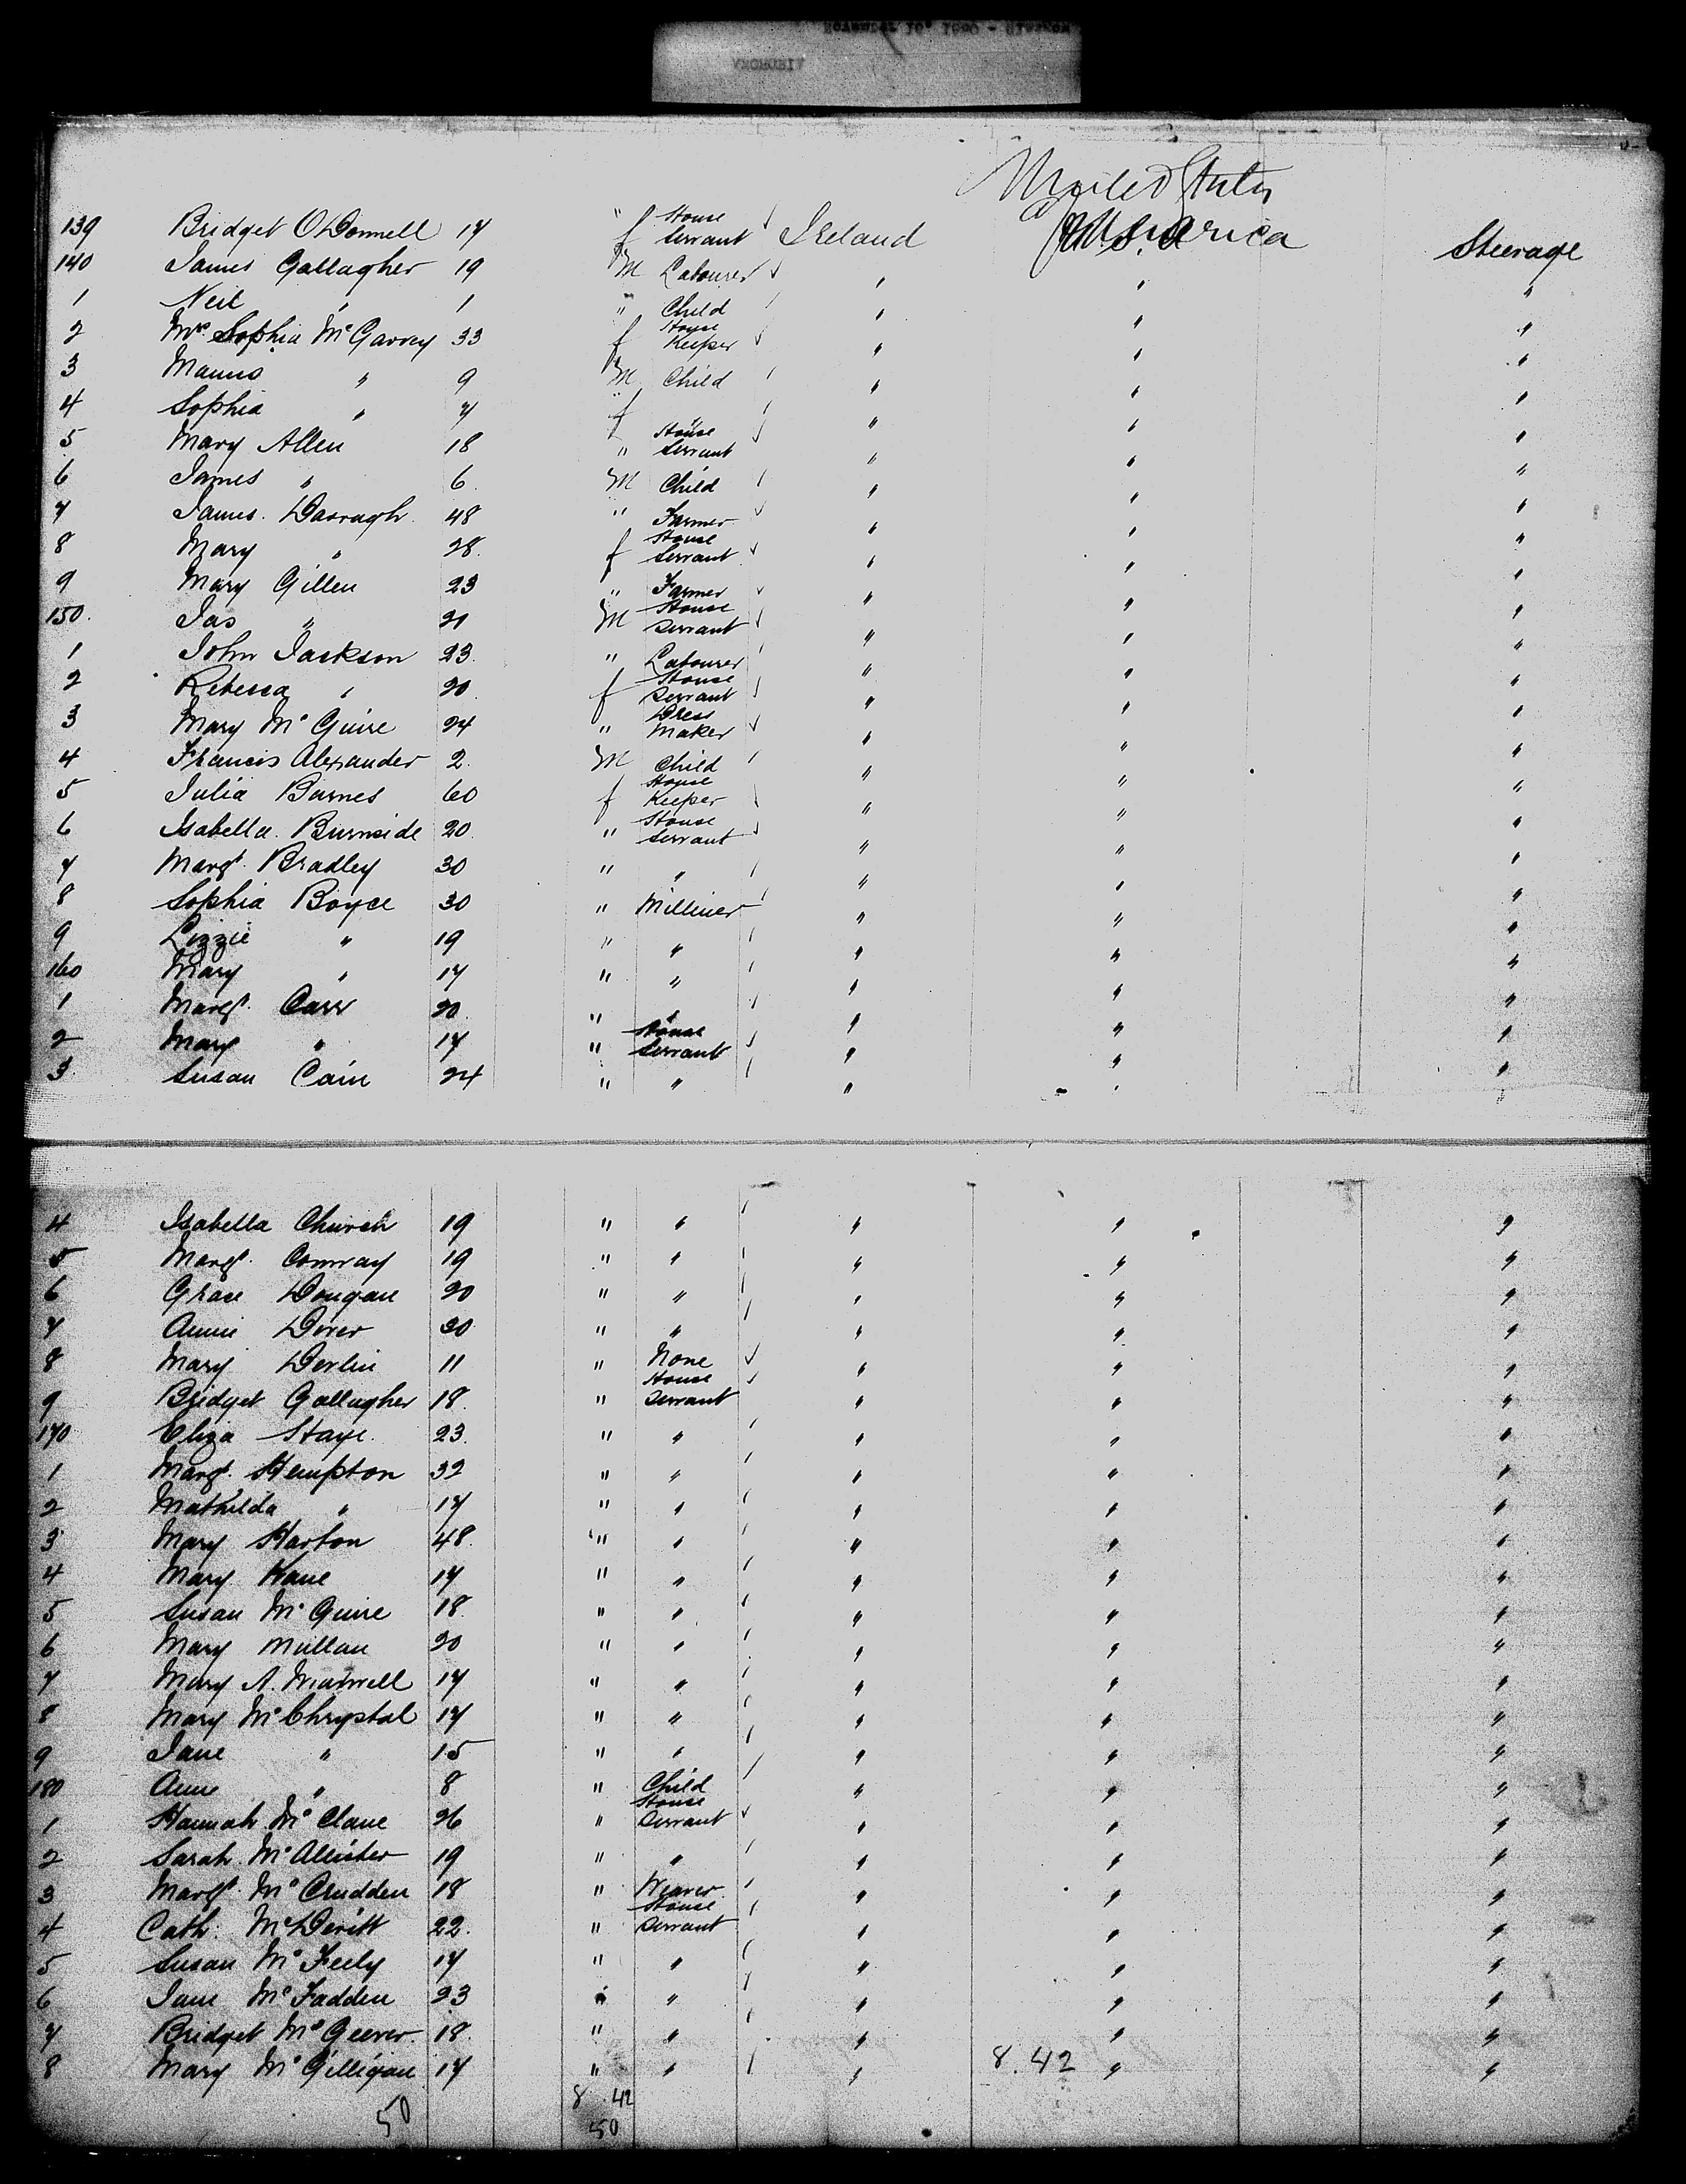 United States
139 Bridget O'Donnell 17 " f House Servant Ireland U.S. America Steerage
140 James Gallagher 19 M Labourer " " "
1 Neil " 1 " Child " " "
2 Mrs. Sophia McGarvey 33 f House Keeper " " "
3 Manus " 9 M Child " " "
4 Sophia " 7 f " " " "
5 Mary Allen 18 " House Servant " " "
6 James " 6 M Child " " "
7 James Darragh 48 " Farmer " " "
8 Mary " 28 f House Servant " " "
9 Mary Gillen 23 " Farmer " " "
150 Jas " 21 M House Servant " " "
1 John Jackson 23 " Labourer " " "
2 Rebecca " 20 f House Servant " " "
3 Mary McGuire 24 " Dress Maker " " "
4 Francis Alexander 2 M Child " " "
5 Julia Barnes 60 f House Keeper " " "
6 Isabella Burnside 20 " House Servant " " "
7 Margt. Bradley 30 " " " " "
8 Sophia Boyce 30 " Milliner " " "
9 Lizzie " 19 " " " " "
160 Mary " 17 " " " " "
1 Margt. Carr 20 " " " " "
2 Mary " 17 " House Servant " " "
3 Susan Cain 24 " " " " "
4 Isabella Church 19 " " " " "
5 Margt. Conway 19 " " " " "
6 Grace Dougan 20 " " " " "
7 Annie Dever 30 " " " " "
8 Mary Devlin 11 " None " " "
9 Bridget Gallagher 18 " House Servant " " "
170 Eliza Haye 23 " " " " "
1 Margt. Hempton 32 " " " " "
2 Mathilda " 17 " " " " "
3 Mary Harton 48 " " " " "
4 Mary Kane 17 " " " " "
5 Susan McGuire 18 " " " " "
6 Mary Mullan 20 " " " " "
7 Mary A. 17 " " " " "
8 Mary McChrystal 17 " " " " "
9 Jane " 15 " " " " "
180 Anne " 8 " Child " " "
1 Hannah McClane 26 " House Servant " " "
2 Sarah McAlister 19 " " " " "
3 Margt. McCrudden 18 " Weaver " " "
4 Cath. McDevitt 22 " House Servant " " "
5 Susan McFeely 17 " " " " "
6 Jane McFadden 23 " " " " "
7 Bridget McGeever 18 " " " " "
8 Mary McGilligan 17 " " " 8.42 " "
50 8.42
50